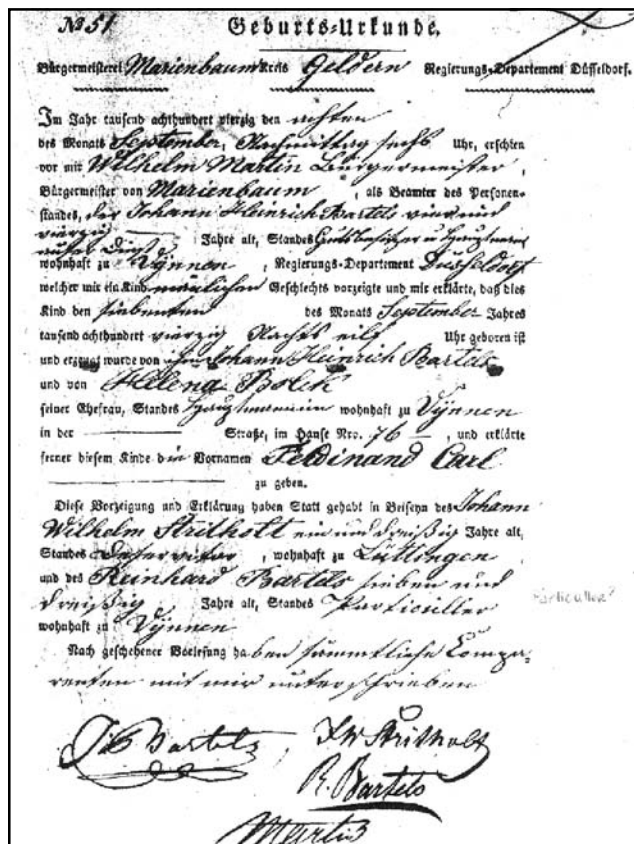 No 51
Geburts-Urkunde.
Bürgermeisterei Marienbaum Kreis Geldern Regierungs-Departement Düsseldorf.
Im Jahr tausend achthundert vierzig den achten
des Monats September, Nachmittag sechs Uhr, erschien
vor mir Wilhelm Martin Bürgermeister,
Bürgermeister von Marienbaum, als Beamter des Personen-
standes, der Johann Heinrich Bartels vier und
vierzig Jahre alt, Standes Gutsbesitzer u Hauptmann
außer Dienst
wohnhaft zu Vynnen, Regierungs-Departement Düsseldorf
welcher mir ein Kind männlichen Geschlechts vorzeigte und mir erklärte, daß dies
Kind den siebenten des Monats September Jahres
tausend achthundert vierzig Nachts eilf Uhr geboren ist
und erzeugt wurde von ihm Johann Heinrich Bartels
und von Helena Bolck
seiner Ehefrau, Standes Hauptmannin wohnhaft zu Vynnen
in der Straße, im Hause Nro. 76, und erklärte
ferner diesem Kinde die Vornamen Ferdinand Carl
zu geben.
Diese Vorzeigung und Erklärung haben Statt gehabt in Beiseyn des Johann
Wilhelm Stritholt ein und dreißig Jahre alt,
Standes Deservitor, wohnhaft zu Lüttingen,
und des Reinhard Bartels sieben und
dreißig Jahre alt, Standes Particuller
wohnhaft zu Vynnen
Particuller?
Nach geschehener Vorlesung haben sämmtliche Compa-
renten mit mir unterschrieben
Bartels, JW Stritholt
R. Bartels
Martin